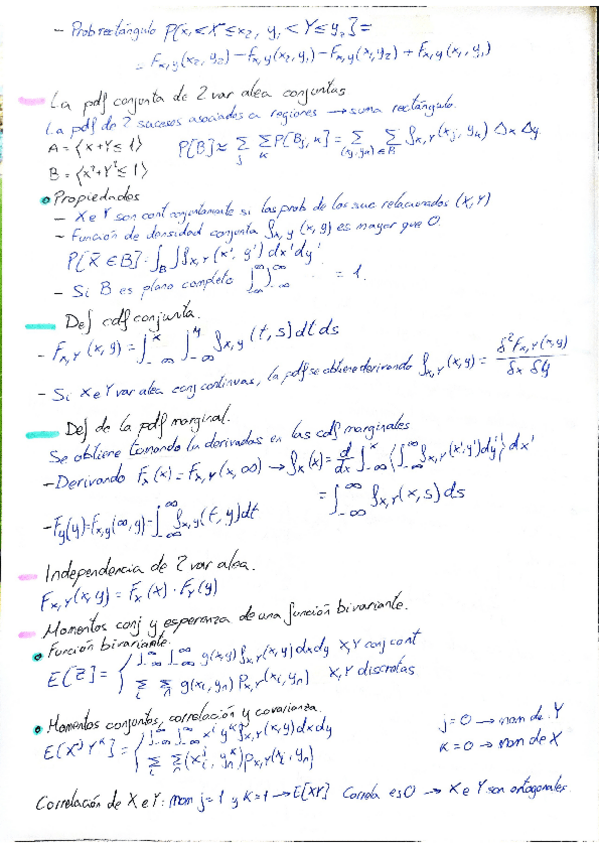 - Prob rectángulo P[x₁<X≤x₂, y₁<Y≤y₂] =
= Fx,y(x₂,y₂) - Fx,y(x₂,y₁) - Fx,y(x₁,y₂) + Fx,y(x₁,y₁)
La pdf conjunta de 2 var alea conjuntas
La pdf de 2 sucesos asociados a regiones → suma rectángulo.
A = {x+Y≤1} P[B] ≈ Σj Σk P[Bj,k] = Σ Σ(xj,yk)∈B fx,Y(xj,yk) Δx Δy
B = {x²+Y²≤1}
Propiedades
- X e Y son cont conjuntamente si las prob de los suc relacionados (X,Y)
- Función de densidad conjunta fx,y(x,y) es mayor que 0.
P[X∈B] = ∫B ∫ fx,Y(x',y') dx'dy'
- Si B es plano completo ∫-∞^∞ ∫-∞^∞ = 1.
Def cdf conjunta.
- Fx,Y(x,y) = ∫-∞^x ∫-∞^y fx,y(t,s) dt ds
- Si X e Y var alea conj continuas, la pdf se obtiene derivando fx,Y(x,y) = δ²Fx,Y(x,y) / δx δy
Def de la pdf marginal.
Se obtiene tomando la derivadas en las cdf marginales
- Derivando Fx(x) = Fx,Y(x,∞) → fx(x) = d/dx ∫-∞^x {∫-∞^∞ fx,Y(x',y')dy'} dx'
= ∫-∞^∞ fx,Y(x,s) ds
- Fy(y) = Fx,y(∞,y) = ∫-∞^∞ fx,Y(t,y) dt
Independencia de 2 var alea.
Fx,Y(x,y) = Fx(x) · Fy(y)
Momentos conj y esperanza de una función bivariante.
Función bivariante.
E[Z] = { ∫-∞^∞ ∫-∞^∞ g(x,y) fx,Y(x,y) dx dy X,Y conj cont
Σi Σn g(xi,yn) Px,Y(xi,yn) X,Y discretas
Momentos conjuntos, correlación y covarianza.
E[X^j Y^k] = { ∫-∞^∞ ∫-∞^∞ x^j y^k fx,Y(x,y) dx dy j=0 → mom de Y
Σi Σn (xi^j, yn^k) Px,Y(xi,yn) k=0 → mom de X
Correlación de X e Y: mom j=1 y k=1 → E[XY] Correla es 0 → X e Y son ortogonales